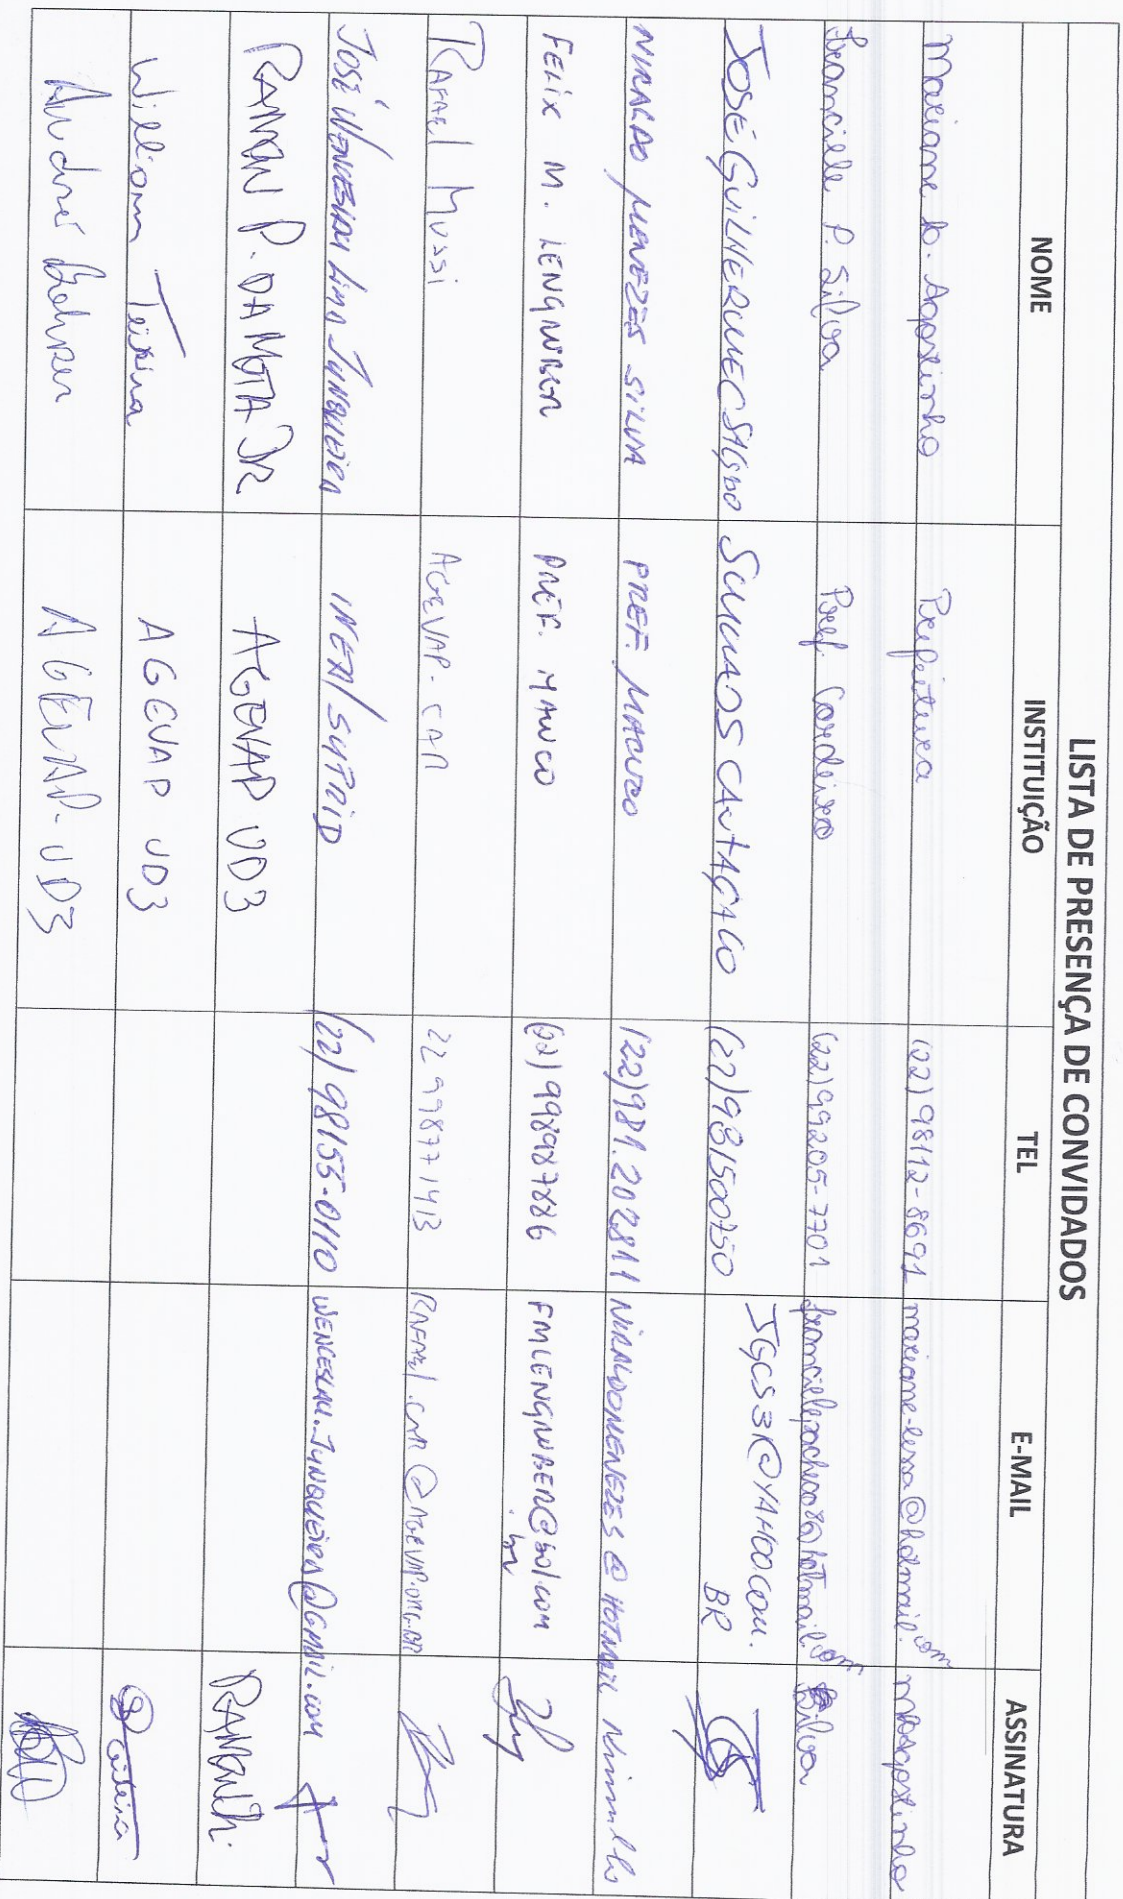 LISTA DE PRESENÇA DE CONVIDADOS
NOME INSTITUIÇÃO TEL E-MAIL ASSINATURA
Mariane D. Agostinho Prefeitura (22) 98112-8691 mariane-lessa@hotmail.com MDAgostinho
Franciele P. Silva Pref. Cordeiro (22) 99205-7701 Silva
JOSÉ GUILHERME C SALGADO CANTAGALO (22) 981500750 JGCS3R@YAHOO.COM.BR
NIRALDO MENEZES SILVA PREF. MACUCO (22) 981.202811 NIRALDOMENEZES@HOTMAIL
FELIX M. LENGRUBER PREF. MACUCO (22) 998987886 FMLENGRUBER@bol.com.br
RAFAEL MUSSI AGEVAP - 22 998771413 RAFAEL.@AGEVAP.ORG.BR
JOSÉ WENCESLAU LIMA JUNQUEIRA INEA/SUPRID (22) 98155-0110 WENCESLAU.JUNQUEIRA@GMAIL.COM
RAMON P. DA MOTA JR AGEVAP UD3
William Teixeira AGEVAP UD3
André AGEVAP-UD3